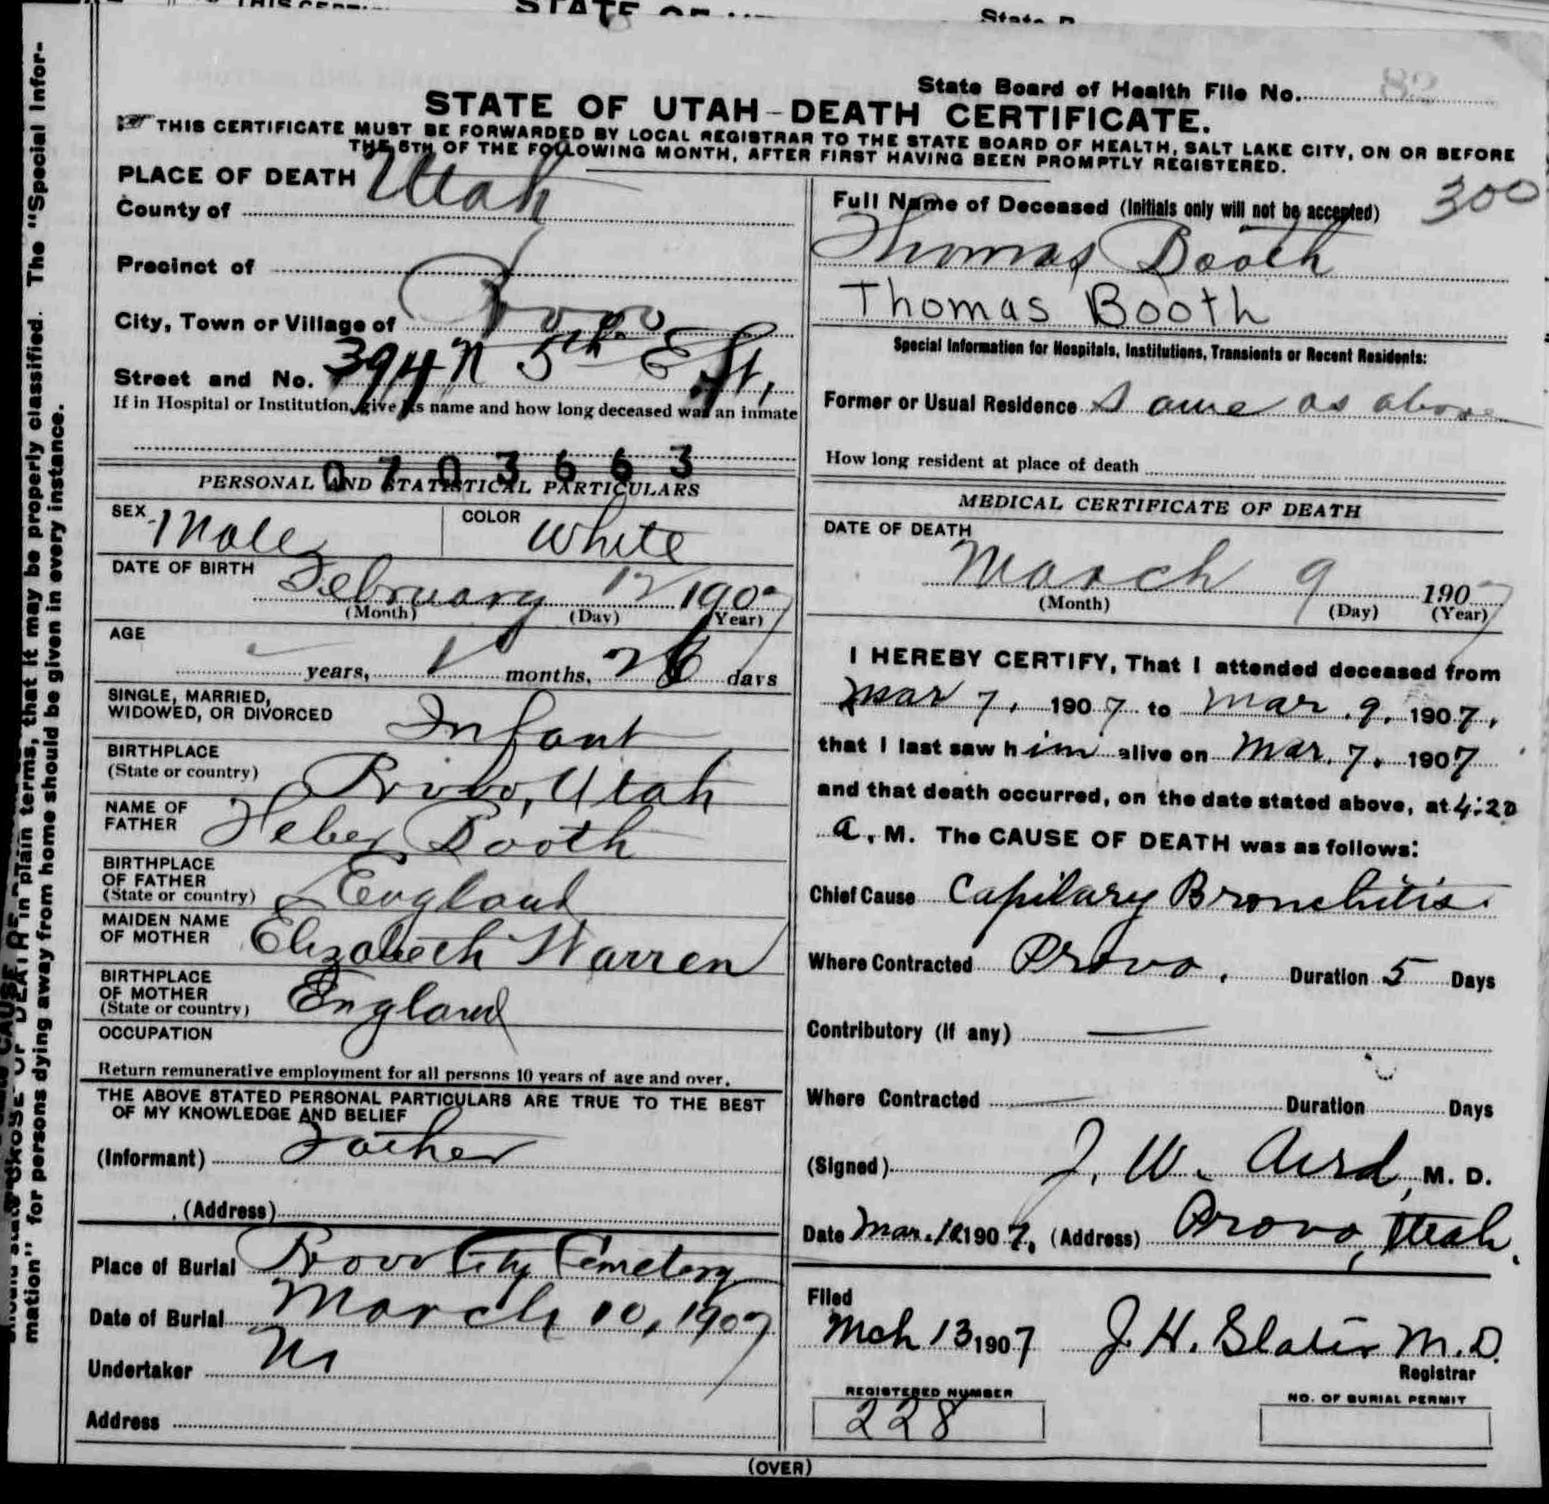 State Board of Health File No. 82
STATE OF UTAH-DEATH CERTIFICATE.
THIS CERTIFICATE MUST BE FORWARDED BY LOCAL REGISTRAR TO THE STATE BOARD OF HEALTH, SALT LAKE CITY, ON OR BEFORE
THE 5TH OF THE FOLLOWING MONTH, AFTER FIRST HAVING BEEN PROMPTLY REGISTERED.
PLACE OF DEATH
County of Utah
Precinct of
City, Town or Village of Provo
Street and No. 394 N 5th E St,
If in Hospital or Institution, give its name and how long deceased was an inmate
0703663
PERSONAL AND STATISTICAL PARTICULARS
SEX Male COLOR White
DATE OF BIRTH February 12 1907
(Month) (Day) (Year)
AGE
years, months, 26 days
SINGLE, MARRIED,
WIDOWED, OR DIVORCED Infant
BIRTHPLACE
(State or country) Provo, Utah
NAME OF
FATHER Heber Booth
BIRTHPLACE
OF FATHER
(State or country) England
MAIDEN NAME
OF MOTHER Elizabeth Warren
BIRTHPLACE
OF MOTHER
(State or country) England
OCCUPATION
Return remunerative employment for all persons 10 years of age and over.
THE ABOVE STATED PERSONAL PARTICULARS ARE TRUE TO THE BEST
OF MY KNOWLEDGE AND BELIEF
(Informant) Father
(Address)
Place of Burial Provo City Cemetery
Date of Burial March 10, 1907
Undertaker
Address
Full Name of Deceased (Initials only will not be accepted) 300
Thomas Booth
Thomas Booth
Special Information for Hospitals, Institutions, Transients or Recent Residents:
Former or Usual Residence Same as above
How long resident at place of death
MEDICAL CERTIFICATE OF DEATH
DATE OF DEATH
March 9 1907
(Month) (Day) (Year)
I HEREBY CERTIFY, That I attended deceased from
Mar 7, 1907 to Mar. 9, 1907,
that I last saw him alive on Mar. 7, 1907
and that death occurred, on the date stated above, at 4:20
a. M. The CAUSE OF DEATH was as follows:
Chief Cause Capilary Bronchitis.
Where Contracted Provo. Duration 5 Days
Contributory (if any) —
Where Contracted — Duration Days
(Signed) J. W. Aird, M. D.
Date Mar. 1907, (Address) Provo, Utah.
Filed
Mch 13 1907 J. H. Slater M.D.
Registrar
REGISTERED NUMBER
228
NO. OF BURIAL PERMIT
(OVER)
The "Special Infor-
in plain terms, that it may be properly classified.
mation" for persons dying away from home should be given in every instance.